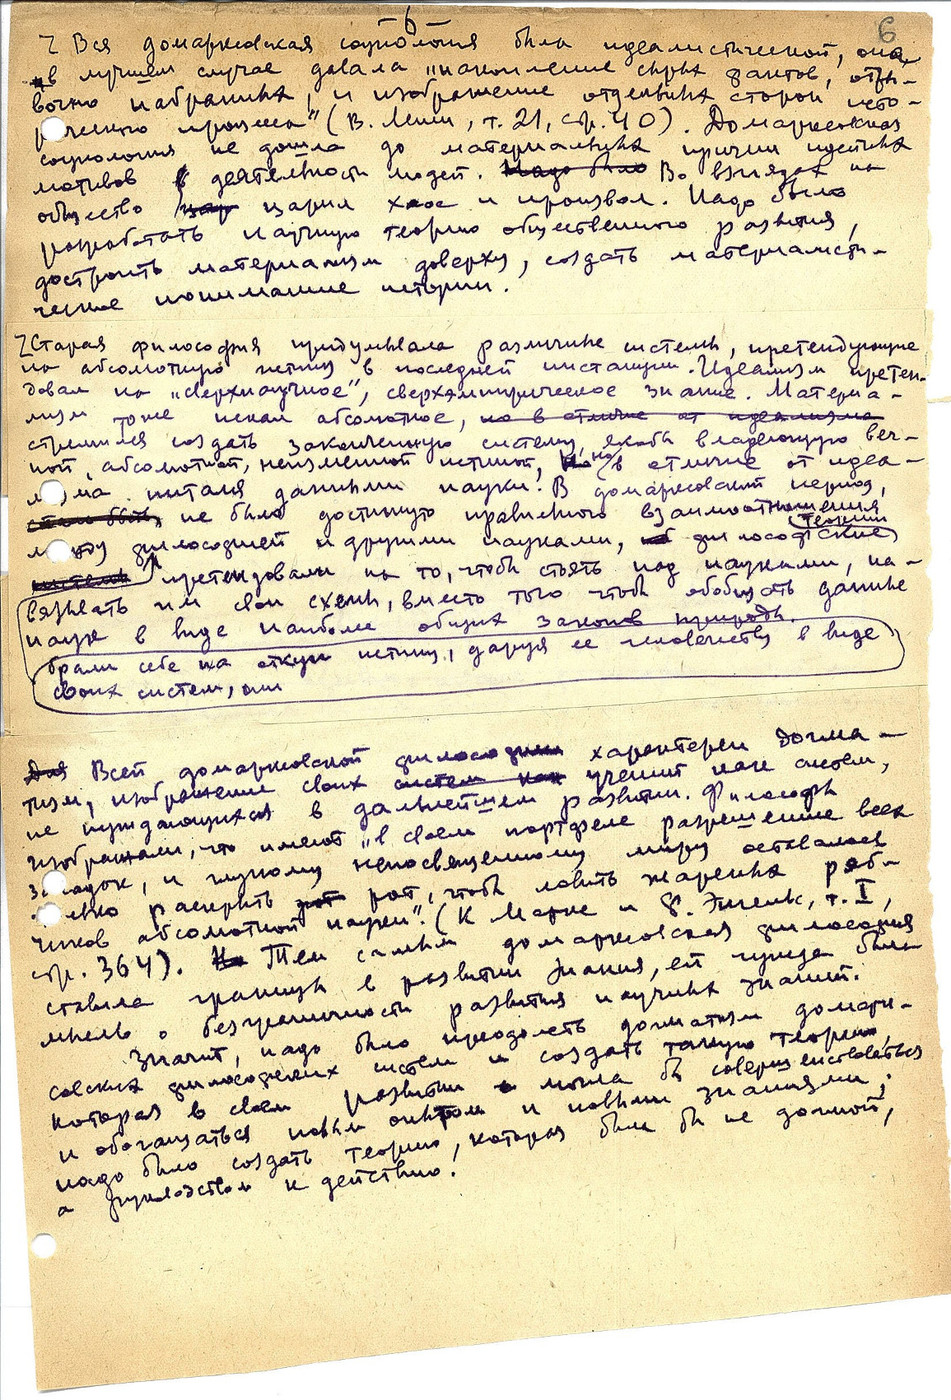 - 6 -
6
Z Вся домарксовская социология была идеалистической, она
в лучшем случае давала "накопление сырых фактов, отры-
вочно набранных, и изображение отдельных сторон исто-
рического процесса" (В. Ленин, т. 21, стр. 40). Домарксовская
социология не дошла до материальных причин идейных
мотивов в деятельности людей. Надо было Во взглядах на
общество цар царил хаос и произвол. Надо было
разработать научную теорию общественного развития,
достроить материализм доверху, создать материалисти-
ческое понимание истории.
Z Старая философия придумывала различные системы, претендующие
на абсолютную истину в последней инстанции. Идеализм претен-
довал на "сверхнаучное", сверхэмпирическое знание. Материа-
лизм тоже искал абсолютное, но в отличие от идеализма
стремился создать законченную систему, якобы владеющую веч-
ной, абсолютной, неизменной истиной, но в отличие от идеа-
лизма питался данными науки. В домарксовский период,
стало быть, не было достигнуто правильного взаимоотношения
между философией и другими науками, философские теории
системы претендовали на то, чтобы стоять над науками, на-
вязывать им свои схемы, вместо того чтобы обобщать данные
наук в виде наиболее общих законов природы.
брали себе на откуп истину, даруя ее человечеству в виде
своих систем, они
Для Всей домарксовской философии характерен догма-
тизм, изображение своих систем как учений как систем,
не нуждающихся в дальнейшем развитии. Философы
изображали, что имеют "в своем портфеле разрешение всех
загадок, и глупому непосвященному миру оставалось
только раскрыть рот рот, чтобы ловить жареных ряб-
чиков абсолютной науки". (К Маркс и Ф. Энгельс, т. I,
стр. 364). Но Тем самым домарксовская философия
ставила границы в развитии знания, ей чужда была
мысль о безграничности развития научных знаний.
Значит, надо было преодолеть догматизм домарк-
совских философских систем и создать такую теорию,
которая в своем развитии могла бы совершенствоваться
и обогащаться новым опытом и новыми знаниями;
надо было создать теорию, которая была бы не догмой,
а руководством к действию.